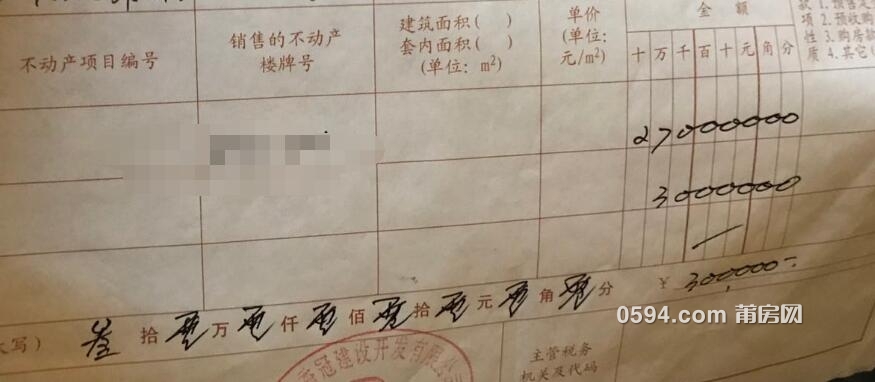 不动产项目编号
销售的不动产
楼牌号
建筑面积( )
套内面积( )
(单位: m²)
单价
(单位:
元/m²)
金 额
十 万 千 百 十 元 角 分
款 1. 预售定
项 2. 预收购
性 3. 购房款
质 4. 其它(
27000000
3000000
大写) 叁 拾 零 万 零 仟 零 佰 零 拾 零 元 零 角 零 分 ¥ 300,000-
冠建设开发有限公
主管税务
机关及代码
0594.com 莆房网